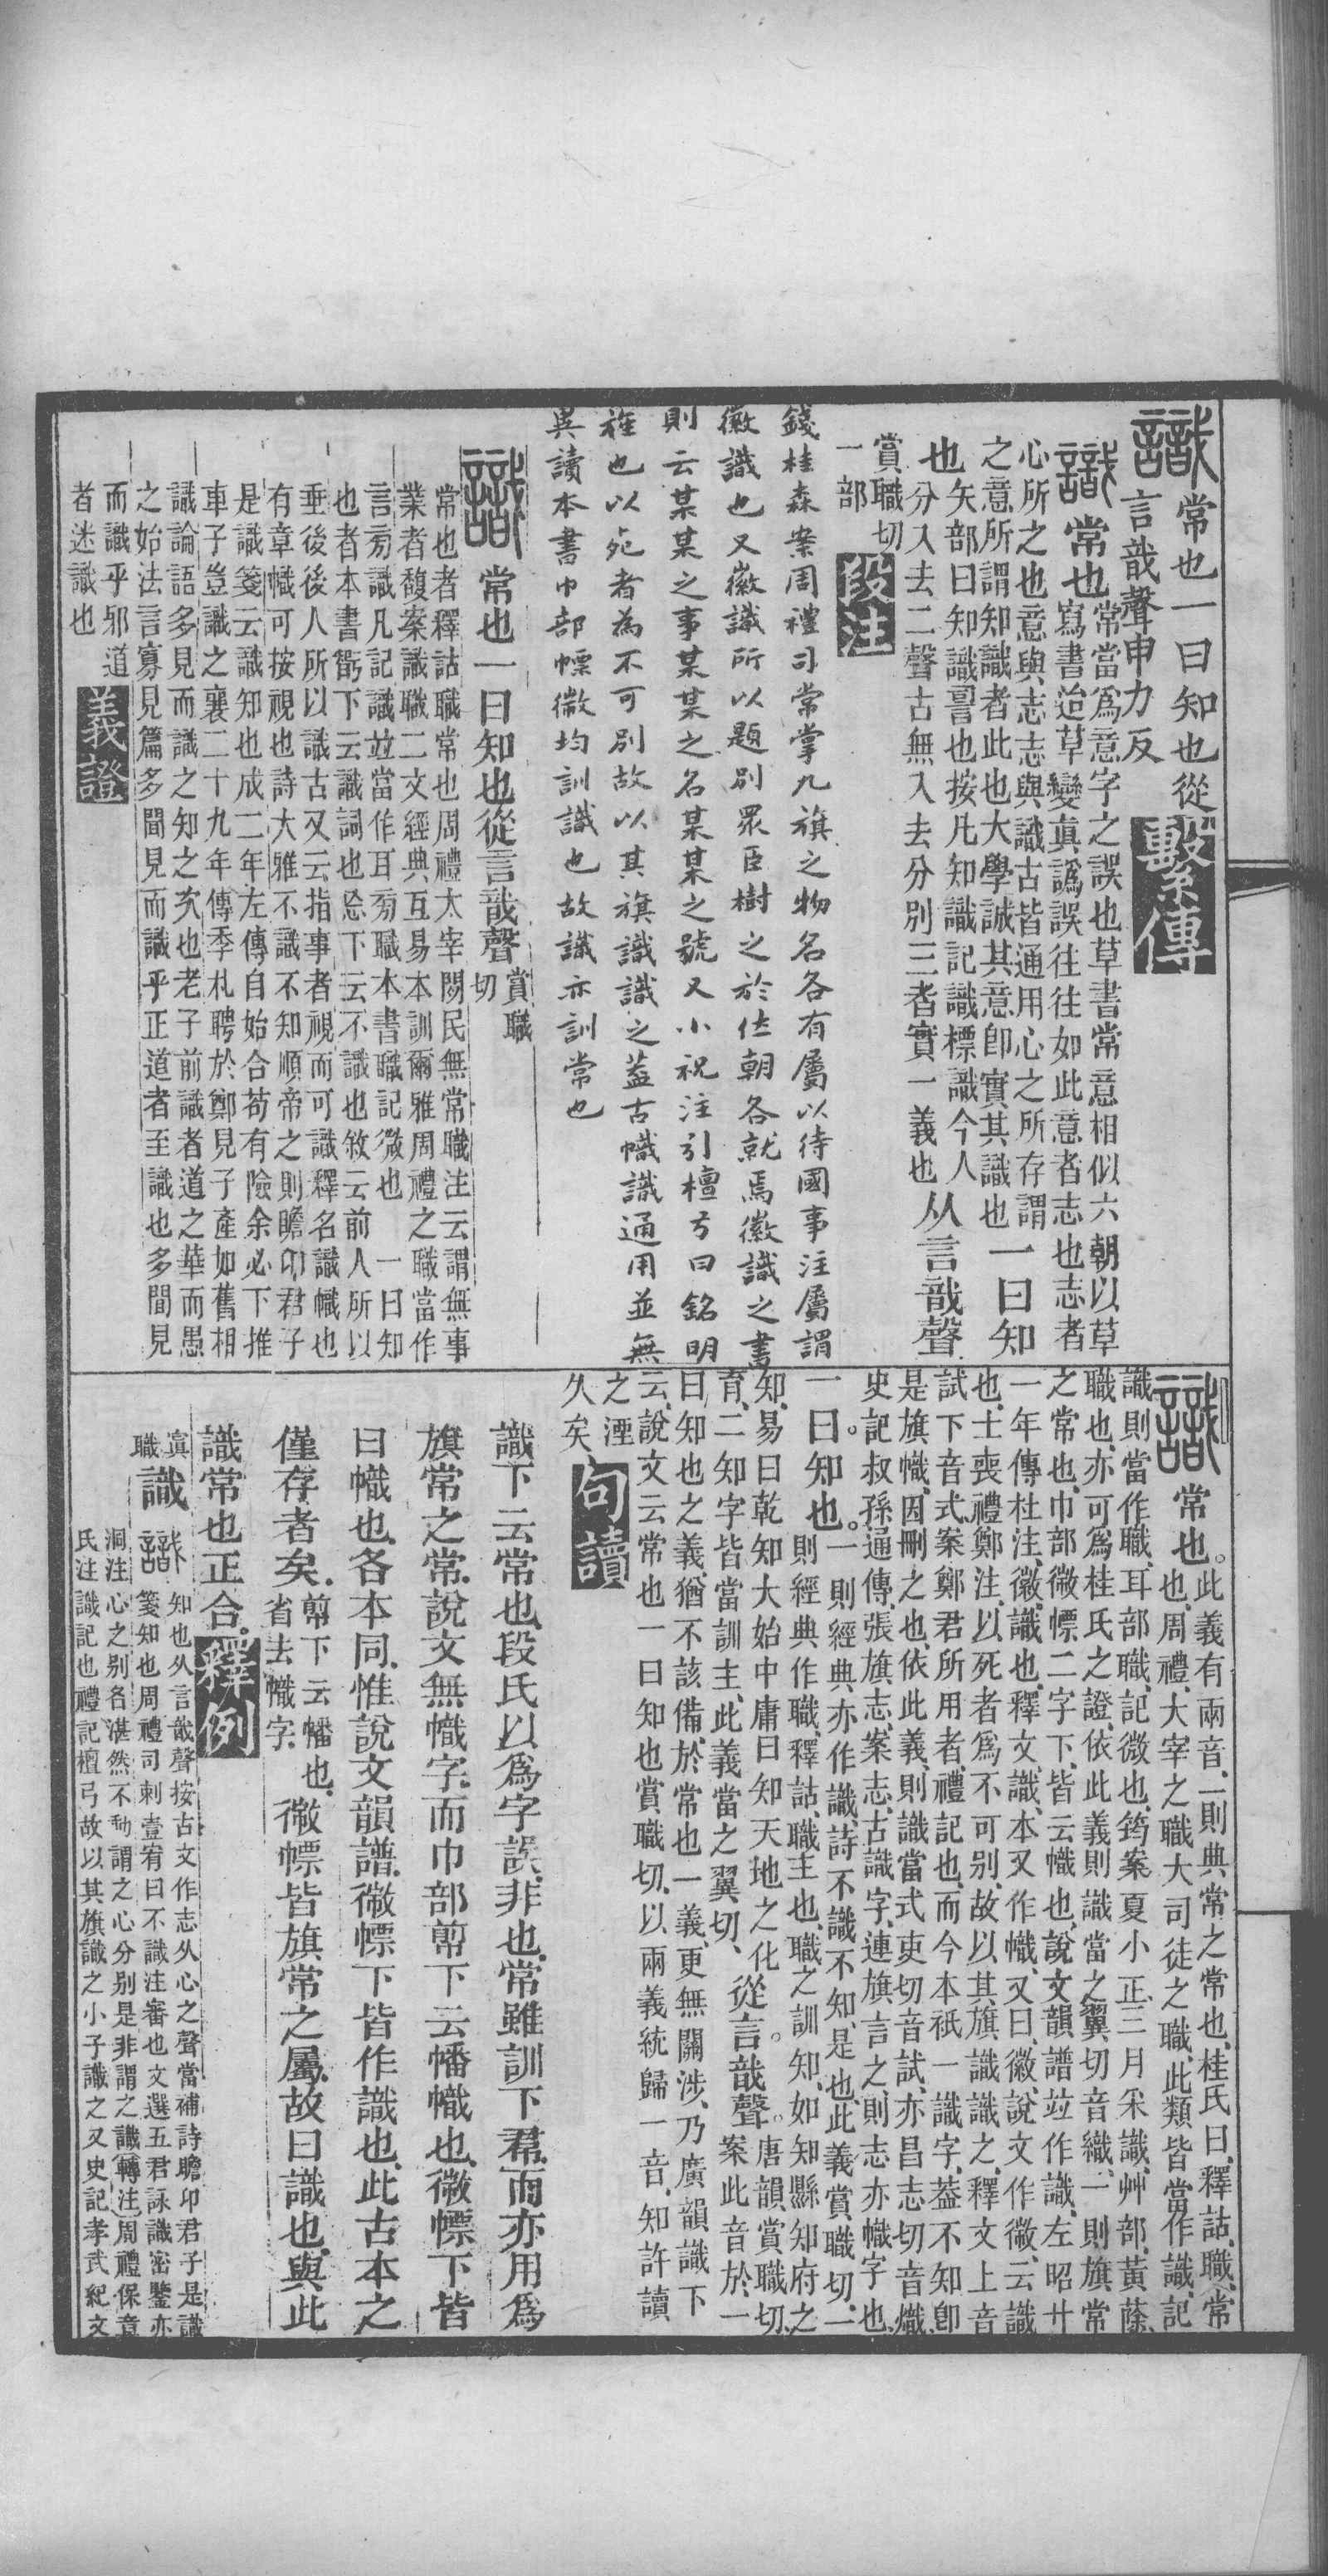 識 常也一曰知也從
言戠聲申力反 繫傳
識 常也常當爲意字之誤也草書常意相似六朝以草
寫書迨草變眞譌誤往往如此意者志也志者
心所之也意與志志與識古皆通用心之所存謂
之意所謂知識者此也大學誠其意卽實其識也一曰知
也矢部曰知識䛐也按凡知識記識標識今人
分入去二聲古無入去分別三者實一義也从言戠聲
賞職切
一部 段注
錢桂森案周禮司常掌九旗之物名各有屬以待國事注屬謂
徽識也又徽識所以題別眾臣樹之於位朝各就焉徽識之書
則云某某之事某某之名某某之號又小祝注引檀弓曰銘明
旌也以死者為不可別故以其旗識識之葢古幟識通用並無
異讀本書巾部幖微均訓識也故識亦訓常也
識 常也一曰知也從言戠聲賞職
切
常也者釋詁職常也周禮太宰閒民無常職注云謂無事
業者馥案識職二文經典互易本訓爾雅周禮之職當作
言旁識凡記識竝當作耳旁職本書職記微也 一曰知
也者本書䛐下云識詞也惢下云不識也敘云前人所以
垂後後人所以識古又云指事者視而可識釋名識幟也
有章幟可按視也詩大雅不識不知順帝之則瞻卬君子
是識箋云識知也成二年左傳自始合苟有險余必下推
車子豈識之襄二十九年傳季札聘於鄭見子產如舊相
識論語多見而識之知之次也老子前識者道之華而愚
之始法言寡見篇多聞見而識乎正道者至識也多聞見
而識乎邪道
者迷識也 義證
識 常也。此義有兩音、一則典常之常也、桂氏曰、釋詁、職、常
也、周禮、大宰之職大司徒之職、此類皆當作識、記
識則當作職、耳部職、記微也、筠案夏小正、三月采識、艸部、黃蒢、
職也、亦可爲桂氏之證、依此義則識當之翼切音織、一則旗常
之常也、巾部微幖二字下、皆云幟也、說文韻譜竝作識、左昭廿
一年傳杜注、徽、識也、釋文、識、本又作幟、又曰、徽說文作微、云識
也、士喪禮鄭注、以死者爲不可別、故以其旗識識之、釋文上音
試下音式、案鄭君所用者、禮記也、而今本祇一識字、葢不知卽
是旗幟、因刪之也、依此義、則識當式吏切音試、亦昌志切音熾、
史記叔孫通傳、張旗志、案志、古識字、連旗言之、則志亦幟字也、
一曰。知也。一則經典亦作識、詩不識不知、是也、此義賞職切、一
則經典作職、釋詁、職主也、職之訓知、如知縣知府之
知、易曰乾知大始中庸曰知天地之化
育、二知字皆當訓主、此義當之翼切、從言戠聲。唐韻賞職切、
案此音於、一
曰知也之義、猶不該備、於常也一義、更無關涉、乃廣韻識下
云、說文云常也一曰知也賞職切、以兩義統歸一音、知許讀
之湮
久矣 句讀
識下云常也、段氏以爲字誤、非也、常雖訓下帬、而亦用爲
旗常之常、說文無幟字、而巾部㡐下云幡幟也、微幖下皆
曰幟也、各本同、惟說文韻譜、微幖下皆作識也、此古本之
僅存者矣、㡐下云幡也、
省去幟字、微幖皆旗常之屬、故曰識也、與此
識常也正合、 釋例
識 知也从言戠聲按古文作志从心之聲當補詩瞻卬君子是識
箋知也周禮司刺壹宥曰不識注審也文選五君詠識密鑒亦
洞注心之別名湛然不動謂之心分別是非謂之識轉注周禮保章
氏注識記也禮記檀弓故以其旗識之小子識之又史記孝武紀文